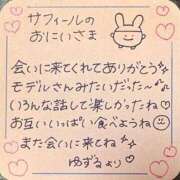 サフィールの
おにいさま
会いに来てくれてありがとう♡
モデルさんみたいだった〜♡
いろんな話して楽しかったね♡
お互いいっぱい食べようね○
また会いに来てね♡
ゆずるより♡